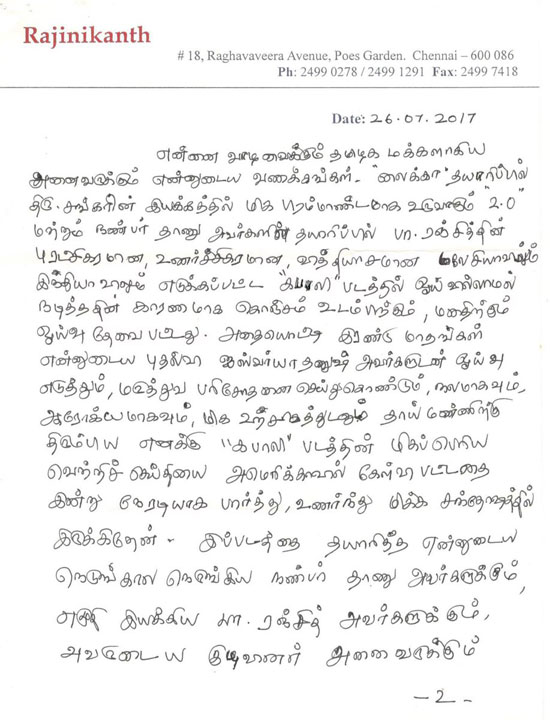 Rajinikanth
# 18, Raghavaveera Avenue, Poes Garden. Chennai – 600 086
Ph: 2499 0278 / 2499 1291 Fax: 2499 7418
Date: 26.07.2017
என்னை வாழவைக்கும் தமிழக மக்களாகிய
அனைவருக்கும் என்னுடைய வணக்கங்கள். "லைக்கா" தயாரிப்பில்
திரு. சங்கரின் இயக்கத்தில் மிக பிரம்மாண்டமாக உருவாகும் "2.0"
மற்றும் நண்பர் தாணு அவர்களின் தயாரிப்பில் பா. ரஞ்சித்தின்
புரட்சிகரமான, உணர்ச்சிகரமான, வித்தியாசமான மலேசியாவிலும்
இந்தியாவிலும் எடுக்கப்பட்ட "கபாலி" படத்தில் ஓய்வில்லாமல்
நடித்ததின் காரணமாக கொஞ்சம் உடம்பிற்கும், மனதிற்கும்
ஓய்வு தேவைபட்டது. அதையொட்டி இரண்டு மாதங்கள்
என்னுடைய புதல்வி ஐஸ்வர்யாதனுஷ் அவர்களுடன் ஓய்வு
எடுத்தும், மருத்துவ பரிசோதனை செய்துகொண்டும், நலமாகவும்,
ஆரோக்யமாகவும், மிக உற்சாகத்துடனும் தாய் மண்ணிற்கு
திரும்பிய எனக்கு "கபாலி" படத்தின் மிகப்பெரிய
வெற்றிச் செய்தியை அமெரிக்காவில் கேள்விபட்டதை
இன்று நேரடியாக பார்த்து, உணர்ந்து மிக்க சந்தோஷத்தில்
இருக்கிறேன். இப்படத்தை தயாரித்த என்னுடைய
நெடுங்கால நெருங்கிய நண்பர் தாணு அவர்களுக்கும்,
எழுதி இயக்கிய பா. ரஞ்சித் அவர்களுக்கும்,
அவருடைய குழுவினர் அனைவருக்கும்
-2-